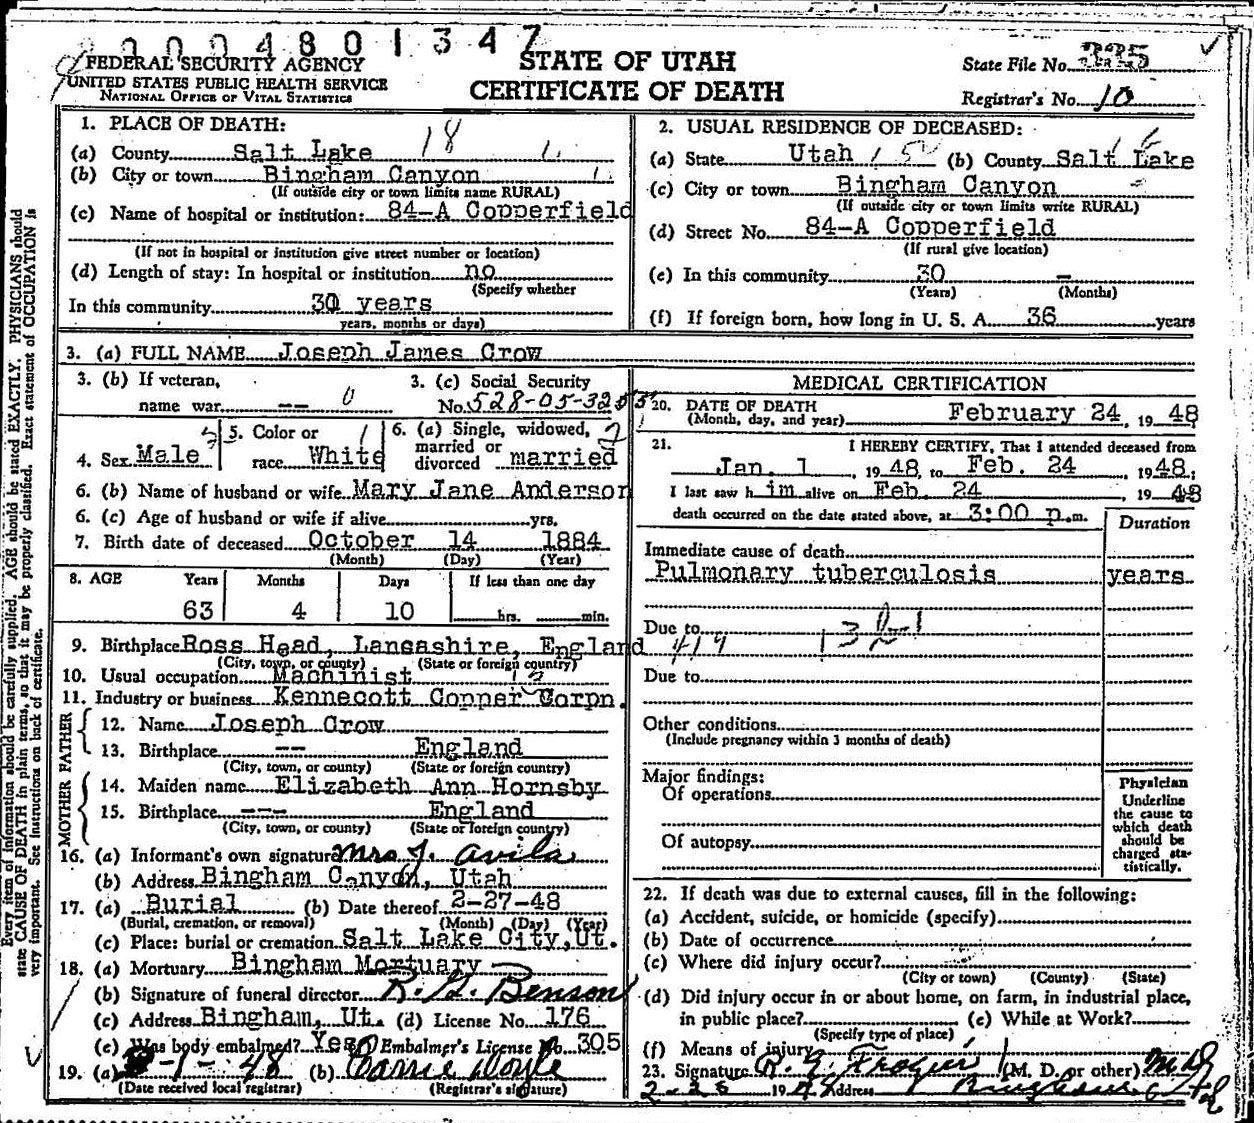 20004801347
FEDERAL SECURITY AGENCY
UNITED STATES PUBLIC HEALTH SERVICE
NATIONAL OFFICE OF VITAL STATISTICS
STATE OF UTAH
CERTIFICATE OF DEATH
State File No. 335
Registrar's No. 10
1. PLACE OF DEATH: 18
(a) County Salt Lake
(b) City or town Bingham Canyon
(If outside city or town limits name RURAL)
(c) Name of hospital or institution: 84-A Copperfield
(If not in hospital or institution give street number or location)
(d) Length of stay: In hospital or institution no
(Specify whether
In this community 30 years
years, months or days)
2. USUAL RESIDENCE OF DECEASED:
(a) State Utah (b) County Salt Lake
(c) City or town Bingham Canyon
(If outside city or town limits write RURAL)
(d) Street No. 84-A Copperfield
(If rural give location)
(e) In this community 30 —
(Years) (Months)
(f) If foreign born, how long in U. S. A. 36 years
3. (a) FULL NAME Joseph James Crow
3. (b) If veteran, name war -- 0
3. (c) Social Security No. 528-05-3255
4. Sex Male
5. Color or race White
6. (a) Single, widowed, married or divorced married
6. (b) Name of husband or wife Mary Jane Anderson
6. (c) Age of husband or wife if alive yrs.
7. Birth date of deceased October 14 1884
(Month) (Day) (Year)
8. AGE Years Months Days If less than one day
63 4 10 hrs. min.
9. Birthplace Ross Head, Lancashire, England
(City, town, or county) (State or foreign country)
10. Usual occupation Machinist
11. Industry or business Kennecott Copper Corpn.
FATHER
12. Name Joseph Crow
13. Birthplace -- England
(City, town, or county) (State or foreign country)
MOTHER
14. Maiden name Elizabeth Ann Hornsby
15. Birthplace --- England
(City, town, or county) (State or foreign country)
16. (a) Informant's own signature Mrs J. Avila
(b) Address Bingham Canyon, Utah
17. (a) Burial (b) Date thereof 2-27-48
(Burial, cremation, or removal) (Month) (Day) (Year)
(c) Place: burial or cremation Salt Lake City, Ut.
18. (a) Mortuary Bingham Mortuary
(b) Signature of funeral director R. G. Benson
(c) Address Bingham, Ut. (d) License No. 176
(e) Was body embalmed? Yes Embalmer's License No. 305
19. (a) 3-1-48 (b) Carrie Doyle
(Date received local registrar) (Registrar's signature)
MEDICAL CERTIFICATION
20. DATE OF DEATH February 24, 1948
(Month, day, and year)
21. I HEREBY CERTIFY, That I attended deceased from
Jan. 1, 1948, to Feb. 24 1948;
I last saw him alive on Feb. 24, 1948
death occurred on the date stated above, at 3:00 p.m.
Duration
Immediate cause of death
Pulmonary tuberculosis years
Due to
Due to
Other conditions
(Include pregnancy within 3 months of death)
Major findings:
Of operations
Of autopsy
Physician
Underline
the cause to
which death
should be
charged sta-
tistically.
22. If death was due to external causes, fill in the following:
(a) Accident, suicide, or homicide (specify)
(b) Date of occurrence
(c) Where did injury occur?
(City or town) (County) (State)
(d) Did injury occur in or about home, on farm, in industrial place,
in public place? (e) While at Work?
(Specify type of place)
(f) Means of injury
23. Signature R. G. Frazier (M. D. or other) MD
2-25 1948 Address Bingham
Every item of information should be carefully supplied. AGE should be stated EXACTLY. PHYSICIANS should
state CAUSE OF DEATH in plain terms, so that it may be properly classified. Exact statement of OCCUPATION is
very important. See instructions on back of certificate.